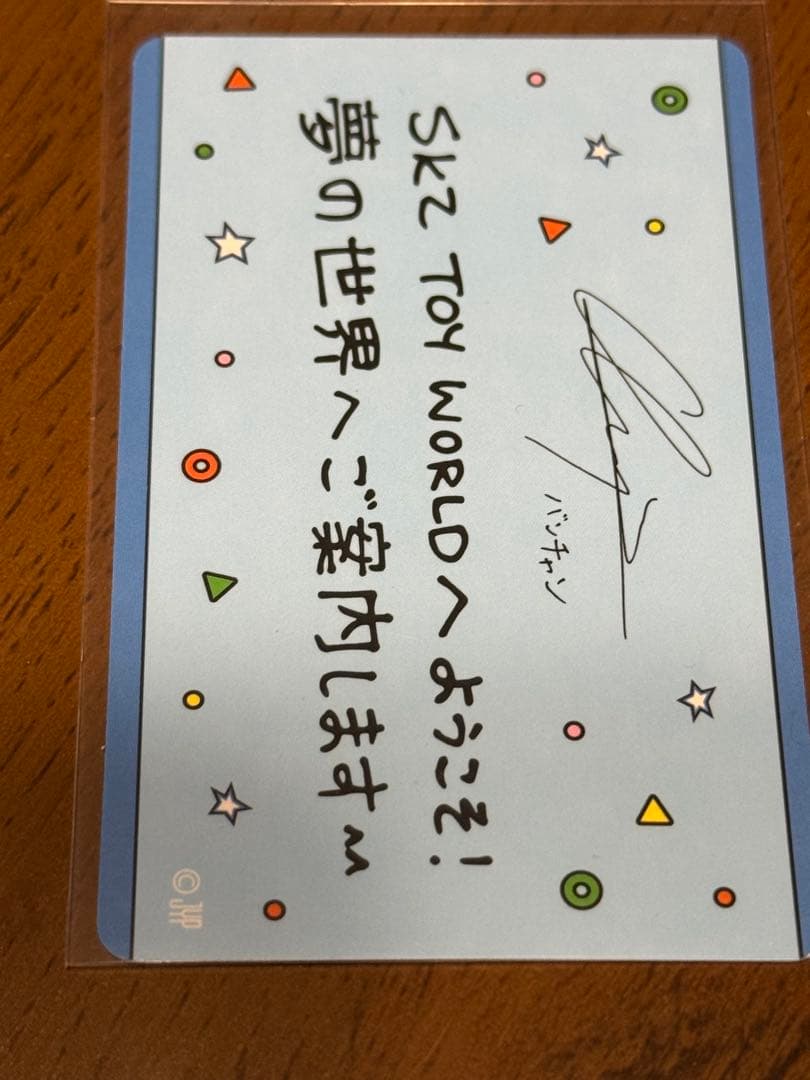 バンチャン
SKZ TOY WORLDへようこそ!
夢の世界へご案内します
© JYP